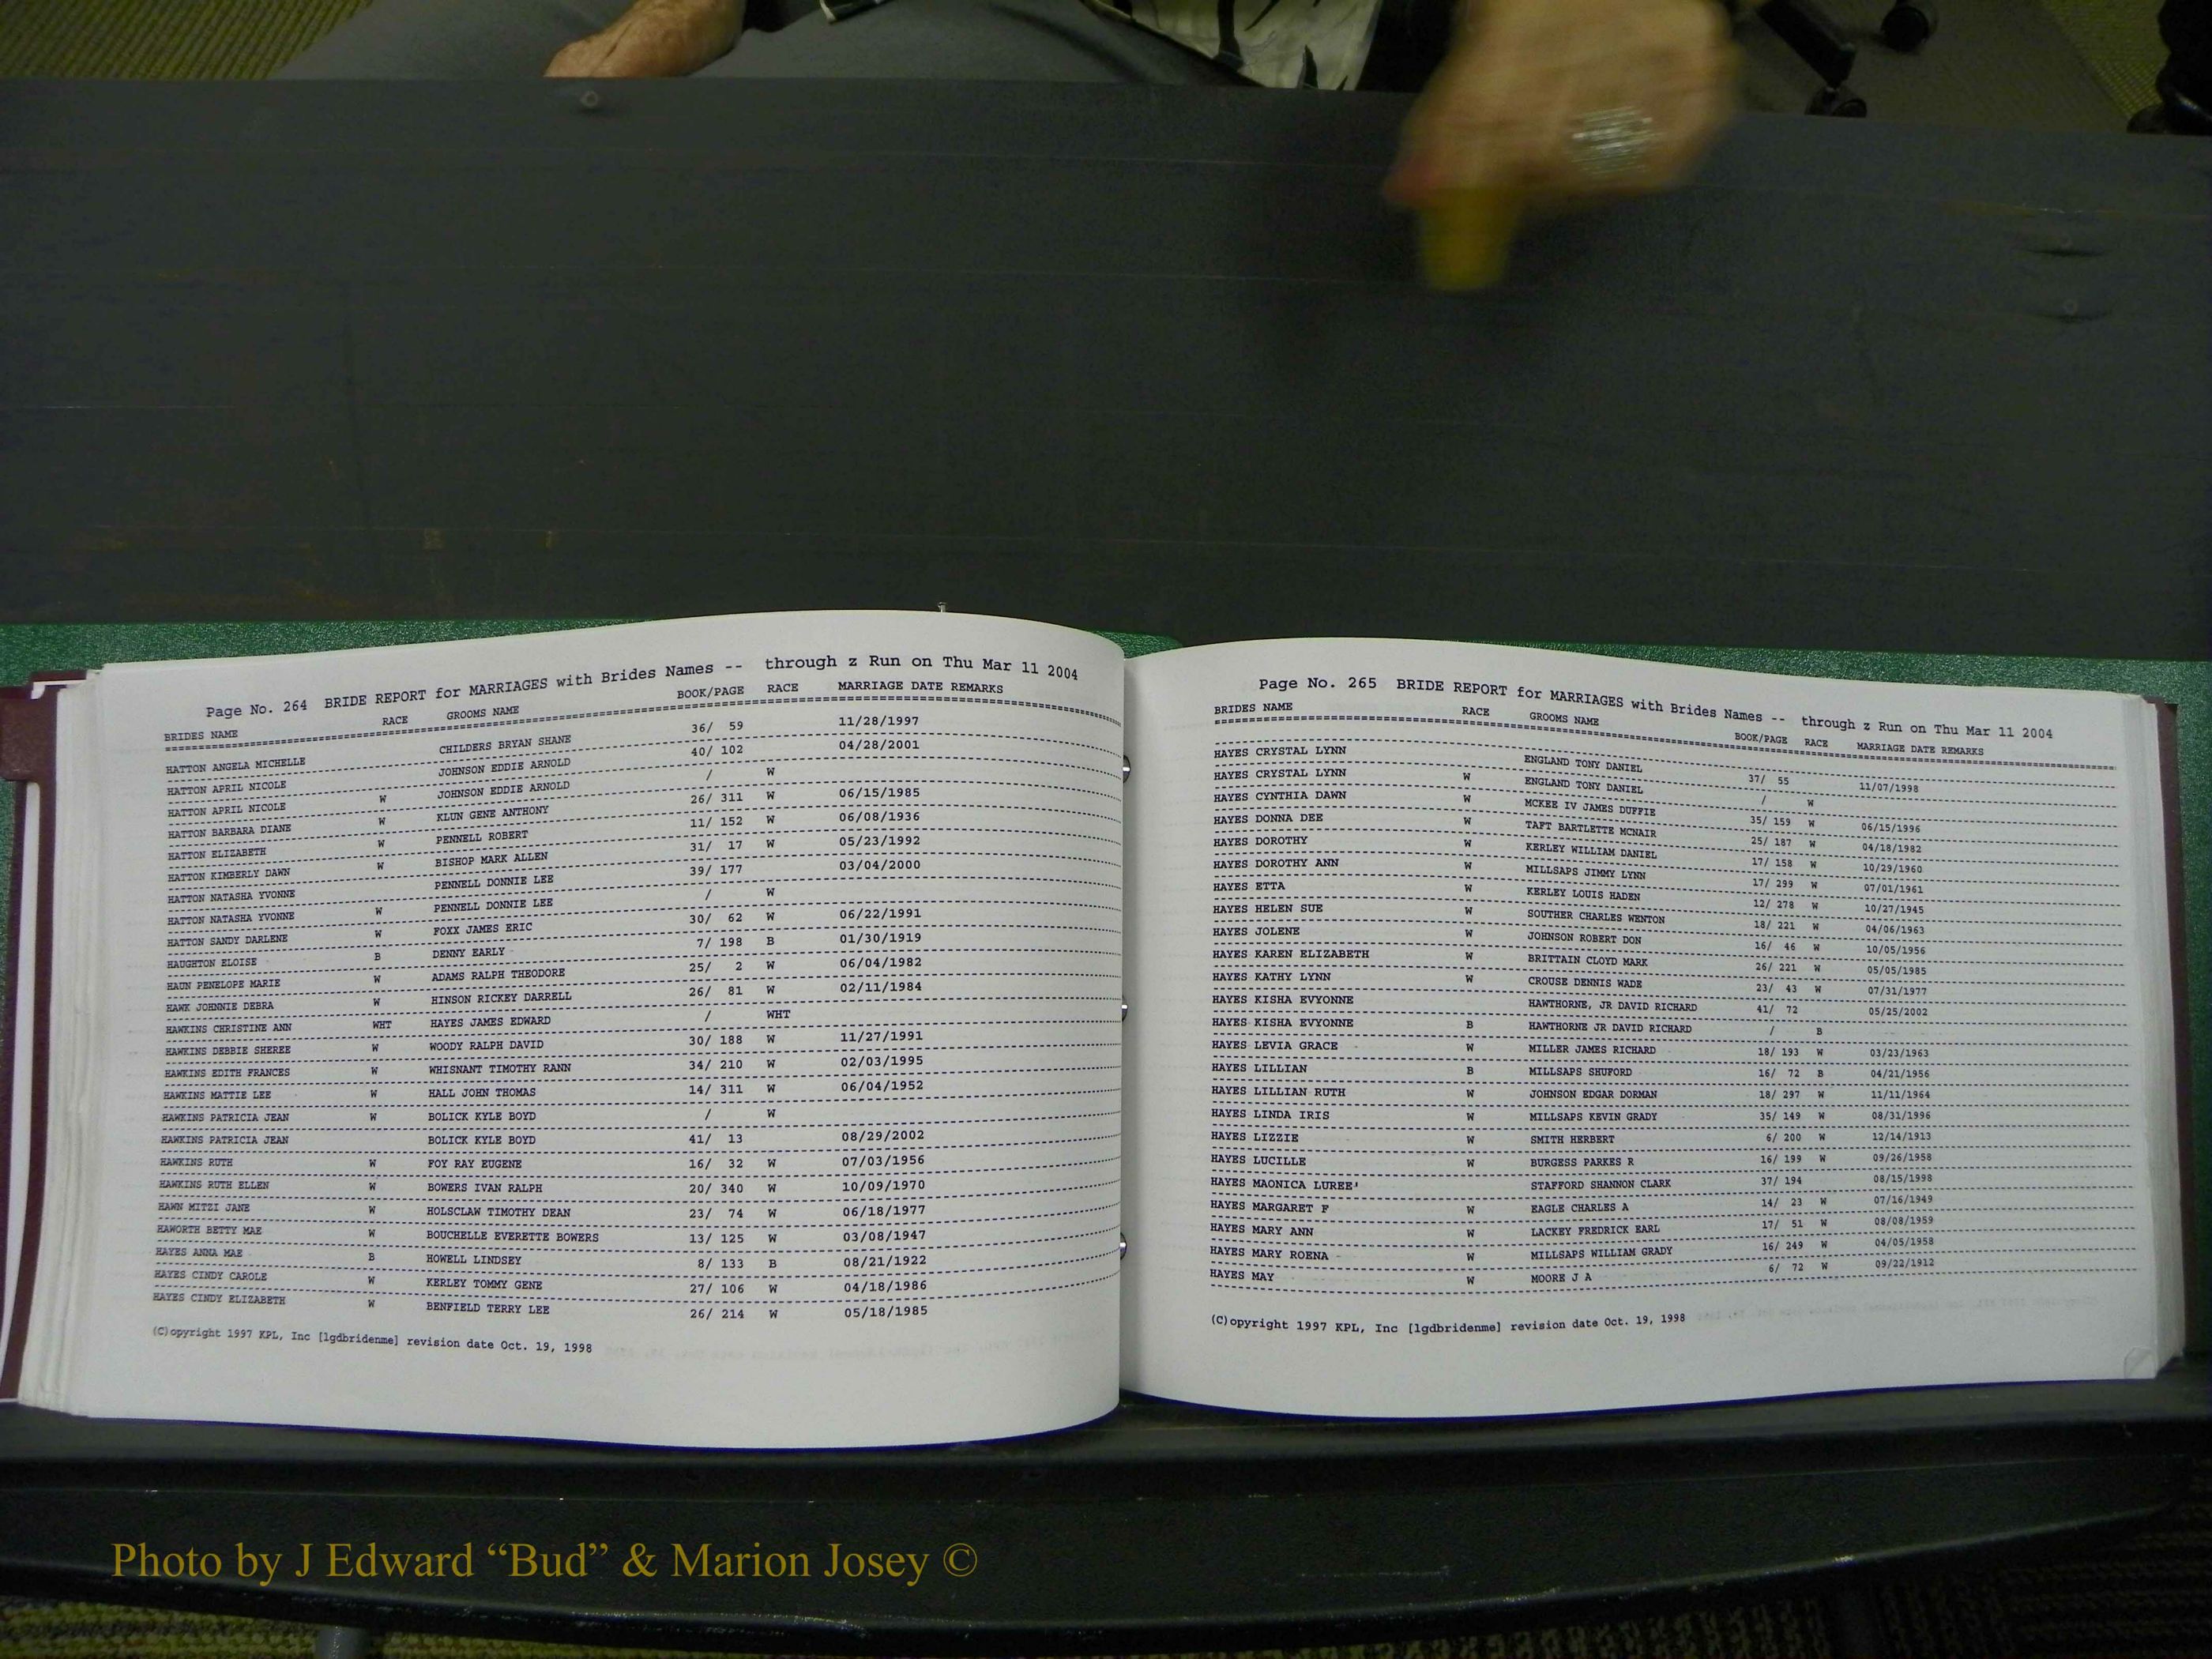 Page No. 264 BRIDE REPORT for MARRIAGES with Brides Names -- through z Run on Thu Mar 11 2004
BRIDES NAME RACE GROOMS NAME BOOK/PAGE RACE MARRIAGE DATE REMARKS
HATTON ANGELA MICHELLE CHILDERS BRYAN SHANE 36/ 59 11/28/1997
HATTON APRIL NICOLE JOHNSON EDDIE ARNOLD 40/ 102 04/28/2001
HATTON APRIL NICOLE W JOHNSON EDDIE ARNOLD / W
HATTON BARBARA DIANE W KLUN GENE ANTHONY 26/ 311 W 06/15/1985
HATTON ELIZABETH W PENNELL ROBERT 11/ 152 W 06/08/1936
HATTON KIMBERLY DAWN W BISHOP MARK ALLEN 31/ 17 W 05/23/1992
HATTON NATASHA YVONNE PENNELL DONNIE LEE 39/ 177 03/04/2000
HATTON NATASHA YVONNE W PENNELL DONNIE LEE / W
HATTON SANDY DARLENE W FOXX JAMES ERIC 30/ 62 W 06/22/1991
HAUGHTON ELOISE B DENNY EARLY 7/ 198 B 01/30/1919
HAUN PENELOPE MARIE W ADAMS RALPH THEODORE 25/ 2 W 06/04/1982
HAWK JOHNNIE DEBRA W HINSON RICKEY DARRELL 26/ 81 W 02/11/1984
HAWKINS CHRISTINE ANN WHT HAYES JAMES EDWARD / WHT
HAWKINS DEBBIE SHEREE W WOODY RALPH DAVID 30/ 188 W 11/27/1991
HAWKINS EDITH FRANCES W WHISNANT TIMOTHY RANN 34/ 210 W 02/03/1995
HAWKINS MATTIE LEE W HALL JOHN THOMAS 14/ 311 W 06/04/1952
HAWKINS PATRICIA JEAN W BOLICK KYLE BOYD / W
HAWKINS PATRICIA JEAN BOLICK KYLE BOYD 41/ 13 08/29/2002
HAWKINS RUTH W FOY RAY EUGENE 16/ 32 W 07/03/1956
HAWKINS RUTH ELLEN W BOWERS IVAN RALPH 20/ 340 W 10/09/1970
HAWN MITZI JANE W HOLSCLAW TIMOTHY DEAN 23/ 74 W 06/18/1977
HAWORTH BETTY MAE W BOUCHELLE EVERETTE BOWERS 13/ 125 W 03/08/1947
HAYES ANNA MAE B HOWELL LINDSEY 8/ 133 B 08/21/1922
HAYES CINDY CAROLE W KERLEY TOMMY GENE 27/ 106 W 04/18/1986
HAYES CINDY ELIZABETH W BENFIELD TERRY LEE 26/ 214 W 05/18/1985
(C)opyright 1997 KPL, Inc [lgdbridenme] revision date Oct. 19, 1998
Page No. 265 BRIDE REPORT for MARRIAGES with Brides Names -- through z Run on Thu Mar 11 2004
BRIDES NAME RACE GROOMS NAME BOOK/PAGE RACE MARRIAGE DATE REMARKS
HAYES CRYSTAL LYNN ENGLAND TONY DANIEL 37/ 55 11/07/1998
HAYES CRYSTAL LYNN W ENGLAND TONY DANIEL / W
HAYES CYNTHIA DAWN W MCKEE IV JAMES DUFFIE 35/ 159 W 06/15/1996
HAYES DONNA DEE W TAFT BARTLETTE MCNAIR 25/ 187 W 04/18/1982
HAYES DOROTHY W KERLEY WILLIAM DANIEL 17/ 158 W 10/29/1960
HAYES DOROTHY ANN W MILLSAPS JIMMY LYNN 17/ 299 W 07/01/1961
HAYES ETTA W KERLEY LOUIS HADEN 12/ 278 W 10/27/1945
HAYES HELEN SUE W SOUTHER CHARLES WENTON 18/ 221 W 04/06/1963
HAYES JOLENE W JOHNSON ROBERT DON 16/ 46 W 10/05/1956
HAYES KAREN ELIZABETH W BRITTAIN CLOYD MARK 26/ 221 W 05/05/1985
HAYES KATHY LYNN W CROUSE DENNIS WADE 23/ 43 W 07/31/1977
HAYES KISHA EVYONNE HAWTHORNE, JR DAVID RICHARD 41/ 72 05/25/2002
HAYES KISHA EVYONNE B HAWTHORNE JR DAVID RICHARD / B
HAYES LEVIA GRACE W MILLER JAMES RICHARD 18/ 193 W 03/23/1963
HAYES LILLIAN B MILLSAPS SHUFORD 16/ 72 B 04/21/1956
HAYES LILLIAN RUTH W JOHNSON EDGAR DORMAN 18/ 297 W 11/11/1964
HAYES LINDA IRIS W MILLSAPS KEVIN GRADY 35/ 149 W 08/31/1996
HAYES LIZZIE W SMITH HERBERT 6/ 200 W 12/14/1913
HAYES LUCILLE W BURGESS PARKES R 16/ 199 W 09/26/1958
HAYES MAONICA LUREE' STAFFORD SHANNON CLARK 37/ 194 08/15/1998
HAYES MARGARET F W EAGLE CHARLES A 14/ 23 W 07/16/1949
HAYES MARY ANN W LACKEY FREDRICK EARL 17/ 51 W 08/08/1959
HAYES MARY ROENA W MILLSAPS WILLIAM GRADY 16/ 249 W 04/05/1958
HAYES MAY W MOORE J A 6/ 72 W 09/22/1912
(C)opyright 1997 KPL, Inc [lgdbridenme] revision date Oct. 19, 1998
Photo by J Edward “Bud” & Marion Josey ©